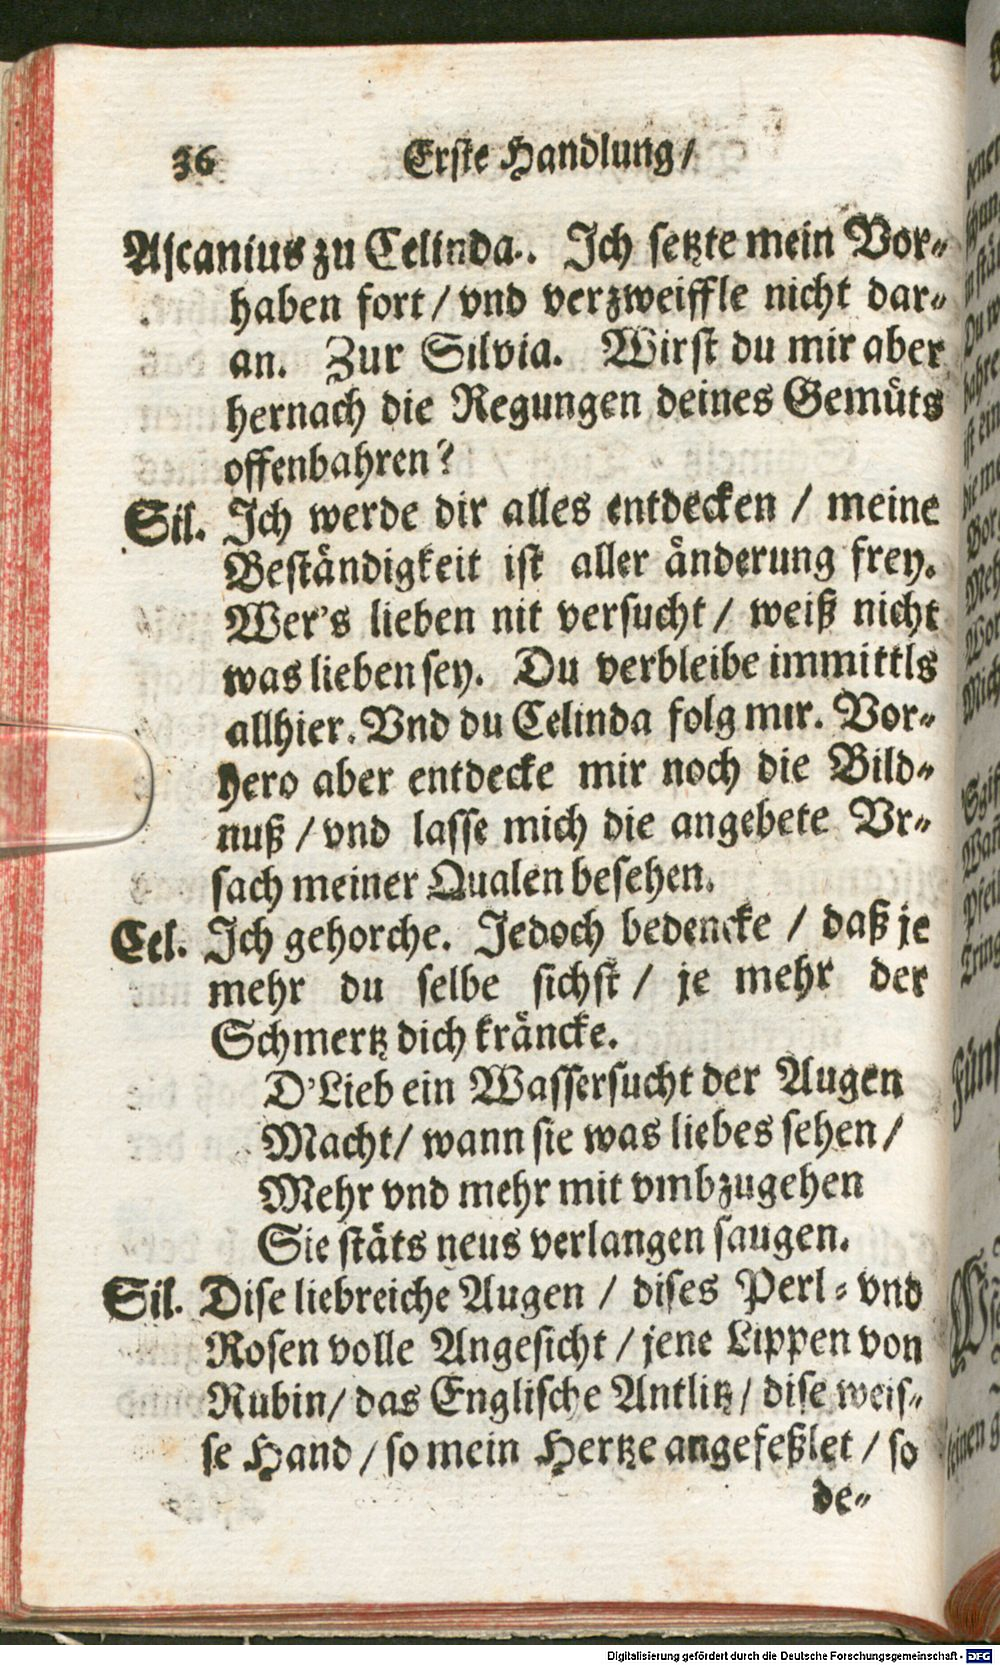 36 Erste Handlung/
Ascanius zu Celinda. Ich setzte mein Vor-
haben fort/ vnd verzweiffle nicht dar-
an. Zur Silvia. Wirst du mir aber
hernach die Regungen deines Gemüts
offenbahren?
Sil. Ich werde dir alles entdecken / meine
Beständigkeit ist aller änderung frey.
Wer's lieben nit versucht / weiß nicht
was lieben sey. Du verbleibe immittls
allhier. Vnd du Celinda folg mir. Vor-
hero aber entdecke mir noch die Bild-
nuß / vnd lasse mich die angebete Vr-
sach meiner Qualen besehen.
Cel. Ich gehorche. Jedoch bedencke / daß je
mehr du selbe sichst / je mehr der
Schmertz dich kräncke.
D'Lieb ein Wassersucht der Augen
Macht/ wann sie was liebes sehen /
Mehr vnd mehr mit vmbzugehen
Sie stäts neus verlangen saugen.
Sil. Dise liebreiche Augen / dises Perl- vnd
Rosen volle Angesicht / jene Lippen von
Rubin/ das Englische Antlitz / dise weis-
se Hand / so mein Hertze angefeßlet / so
de-
Digitalisierung gefördert durch die Deutsche Forschungsgemeinschaft - DFG